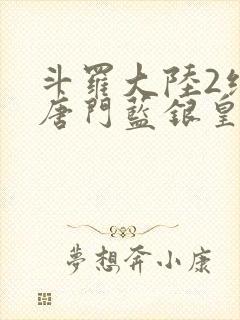 斗羅大陸2
唐門藍銀皇
夢想奔小康